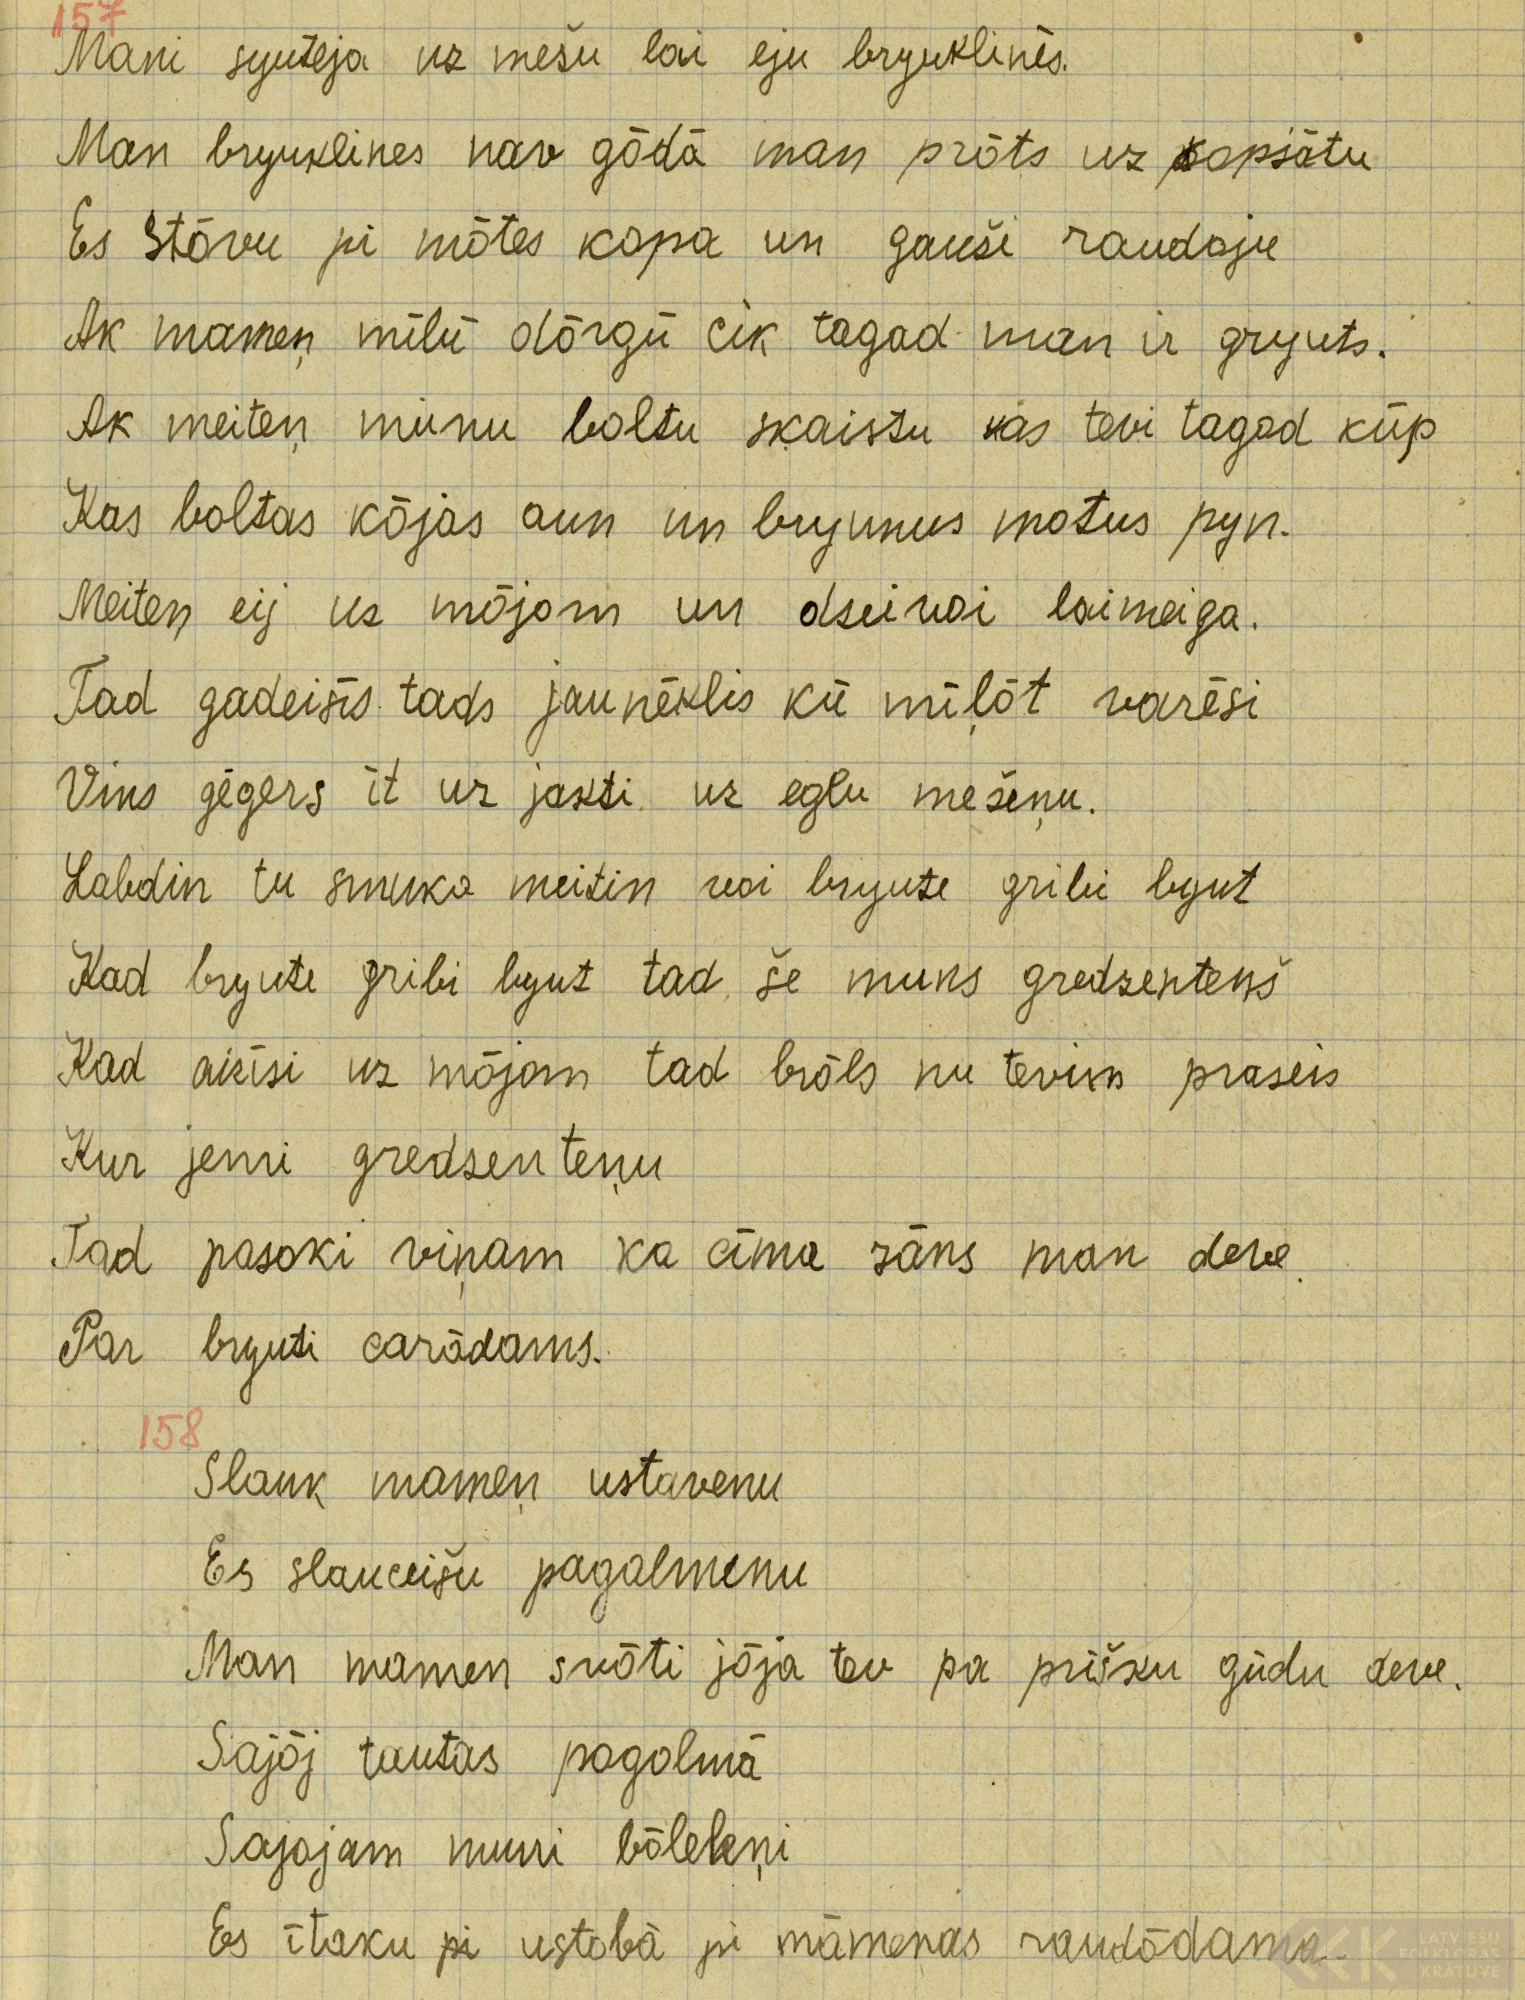 157
Mani syuteja uz mešu lai eju bryuklinēs.
Man bryuklines nav gōdā man prōts uz kopsātu
Es stōvu pi mōtes kopa un gauši raudoju
Ak mameņ mīlū dōrgū cik tagad man ir gryuts.
Ak meiteņ munu boltu skaistu kas tevi tagad kūp
Kas boltas kōjas aun un bryunus motus pyn.
Meiteņ eij uz mōjom un dzeivoi laimeiga.
Tad gadeisīs tads jaunēklis kū mīļōt varēsi
Vīns gēgers īt uz jakti uz eglu mešeņu.
Labdin tu smuka meitin voi bryute gribi byut
Kad bryute gribi byut tad še muns gredzentenš
Kad aizīsi uz mōjom tad brōls nu tevim praseis
Kur jemi gredzenteņu
Tad pasoki viņam ka cīma zāns man deve.
Par bryuti carādams.
158
Slauk mameņ ustavenu
Es slauceišu pagalmenu
Man mamen svōti jōja tev pa prīšku gūdu deve.
Sajōj tautas pogolmā
Sajojam muni bōleleņi
Es ītaku pi ustobā pi māmeņas raudōdama.
LATVIEŠU
FOLKLORAS
KRĀTUVE